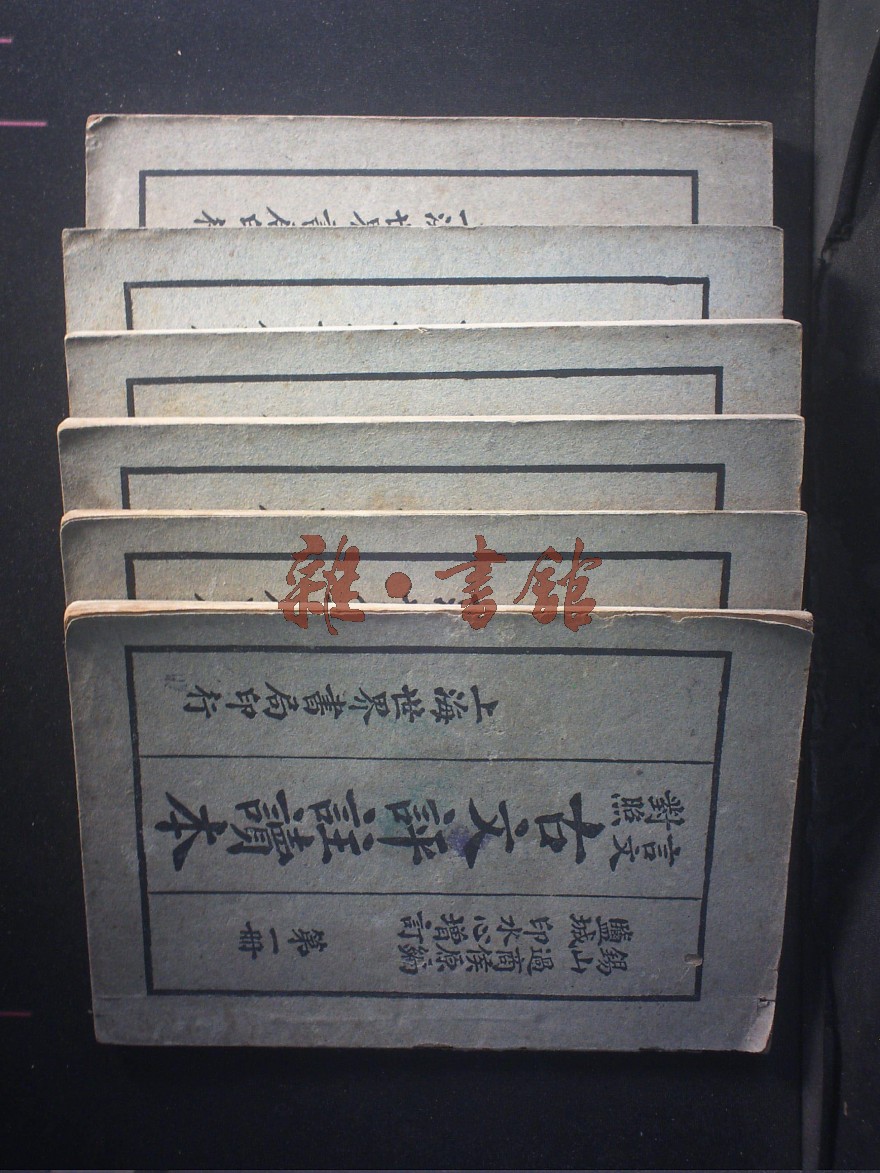 錫山過商侯原編
鹽城印水心增訂
第一冊
言文
對照
古文評註讀本
上海世界書局印行
雜·書館